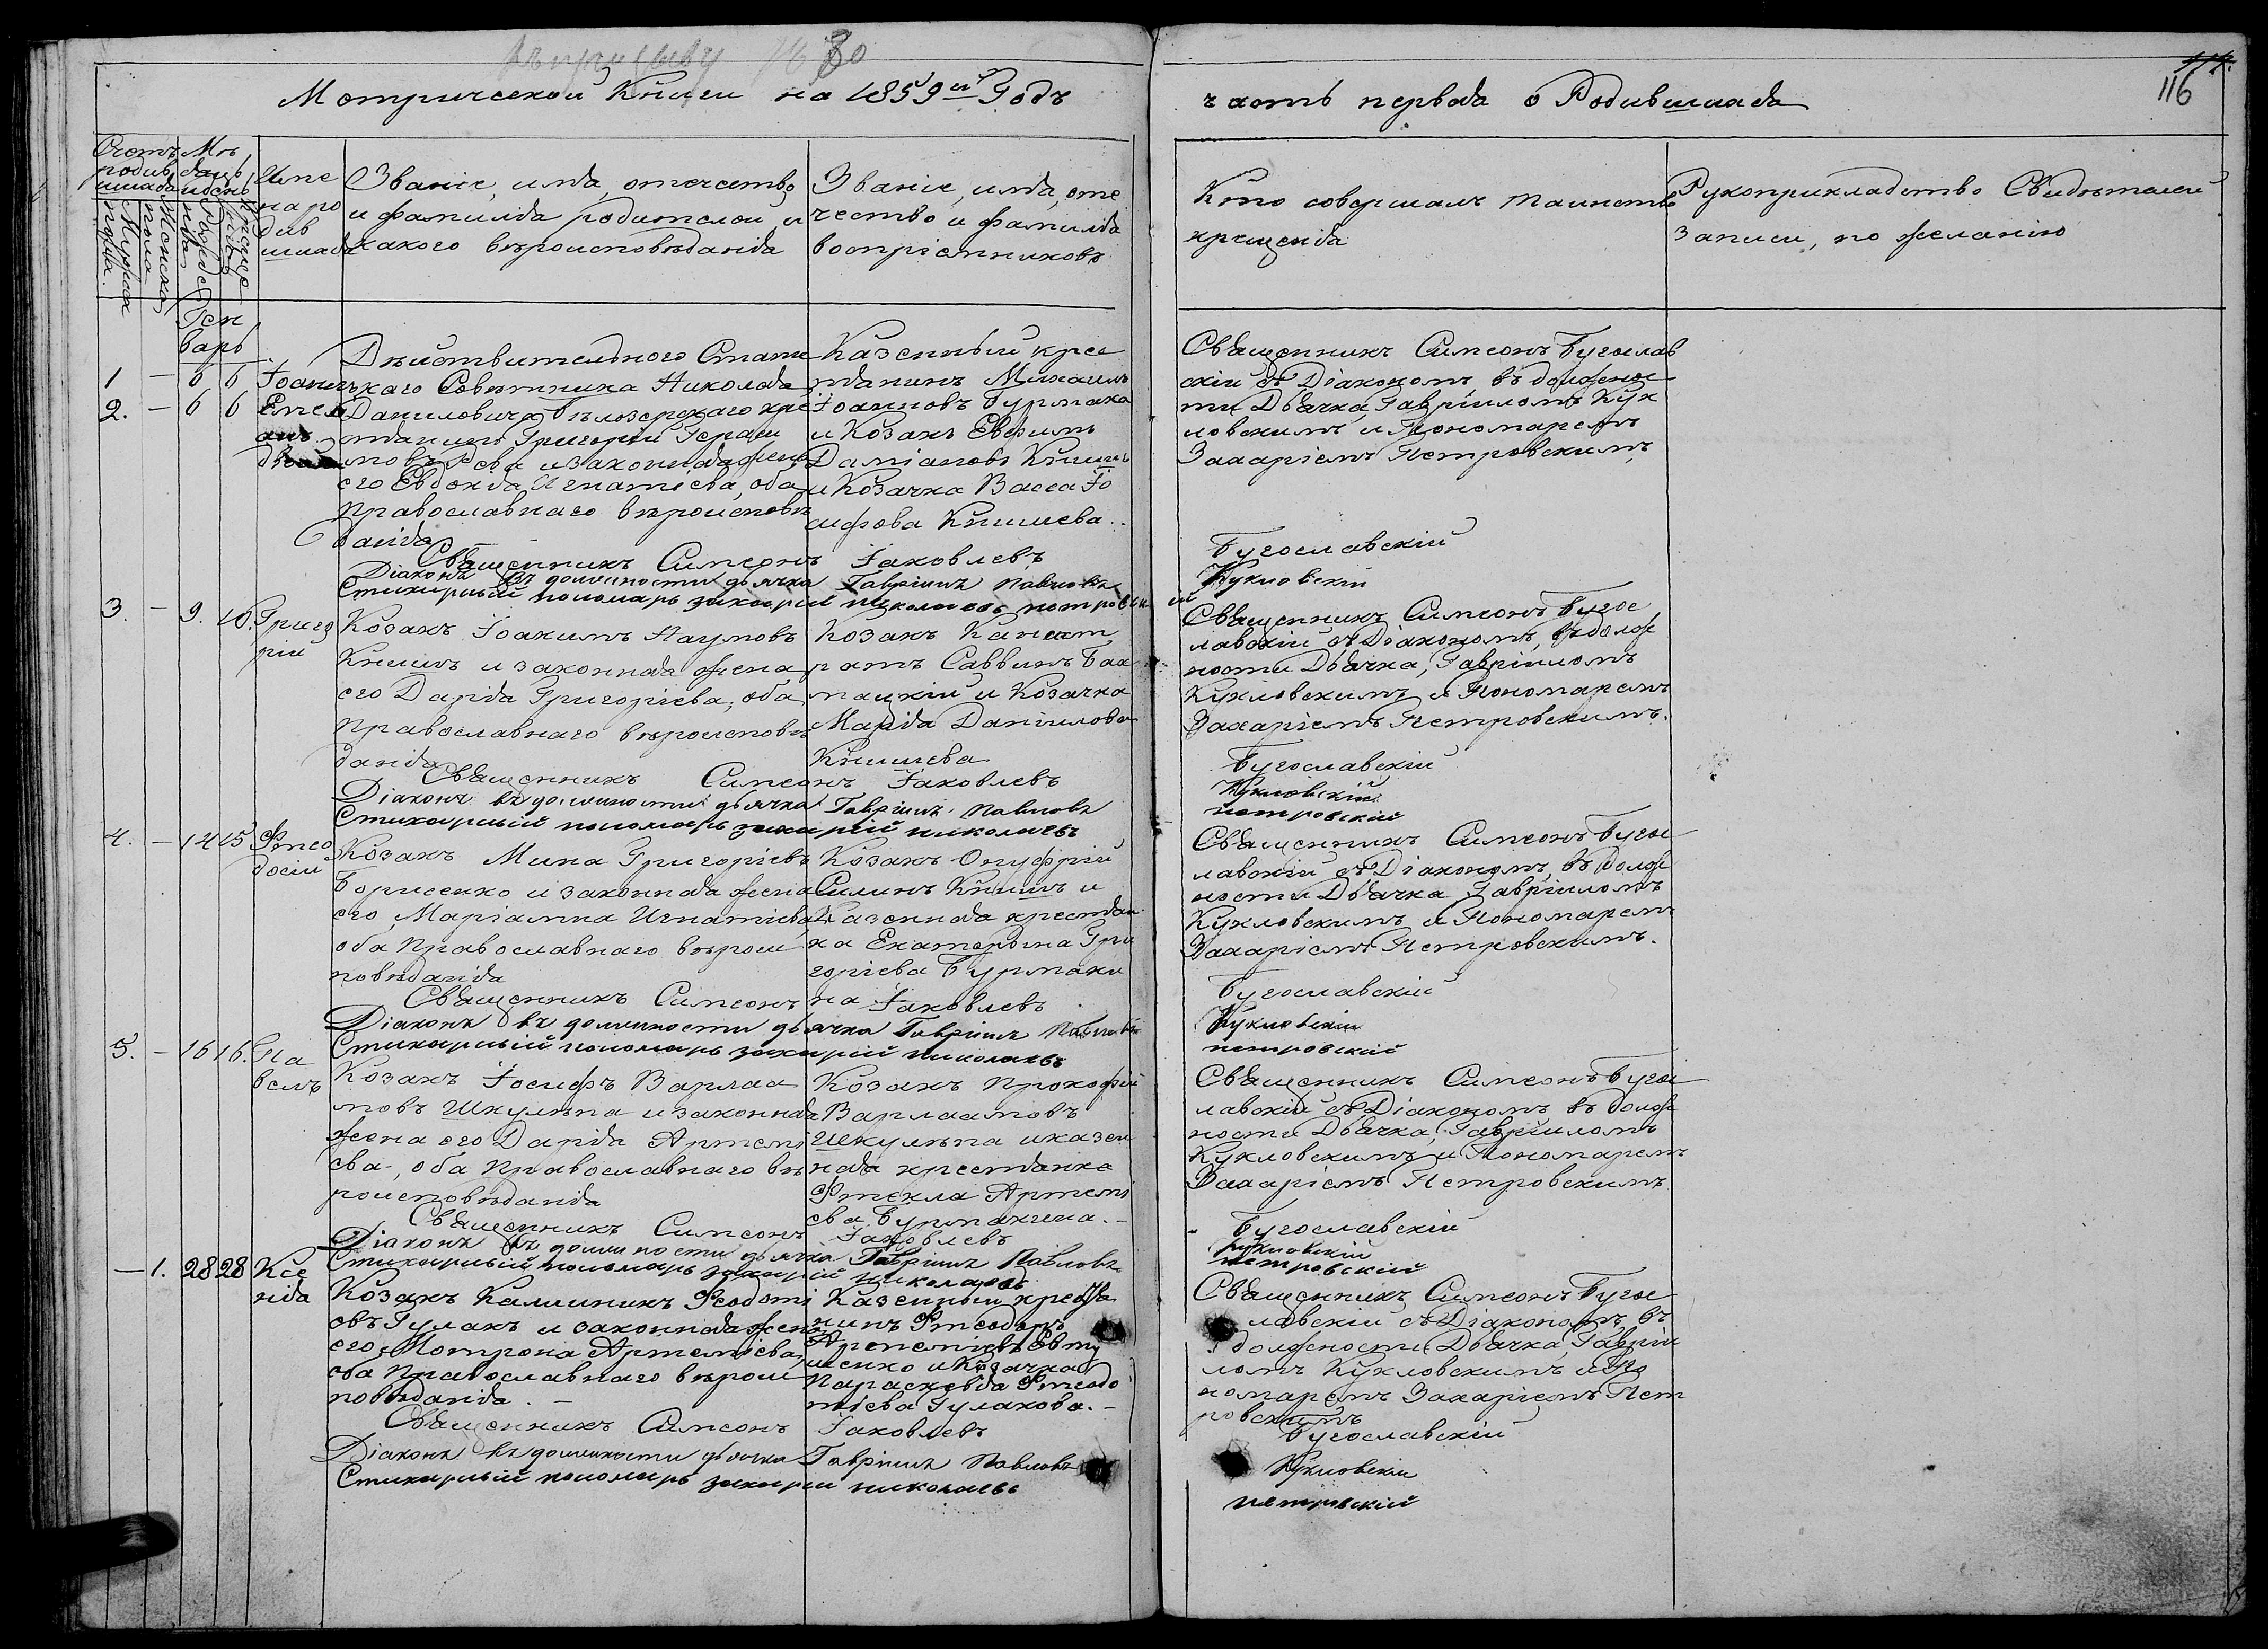 80
Метрической Книги на 1859й Годъ
часть первая о Родившихся
116
Счетъ родив
шихся
Мѣ
сяцъ
и день
Мужеска
пола.
Женска
пола
рожде
нія
креще
нія
Име
на ро
див
шихся
Званіе, имя, отечество
и фамилія родителей, и
какого вѣроисповѣданія
Званіе, имя, оте
чество и фамилія
воспріемниковъ
Кто совершалъ таинство
крещенія
Рукоприкладство Свидѣтелей
записи, по желанію
Ген
варь
1 — 6 6 Іоаннъ
2. — 6 6 Емели
анъ
Дѣйствительного Статс
каго Совѣтника Николая
Даниловича Бѣлозерскаго кре
стьянинъ Григорій Гераси
мовъ и законная жена
его Евдокія Игнатіева, оба
православнаго вѣроисповѣ
данія
Казенный крес
тьянинъ Михаилъ
Іоанновъ Бурмака
и Козакъ Евфимъ
Даміановъ Книшъ
и Козачка Васса Іо
сифова Книшева.
Священникъ Симеонъ Бугослав
скій съ Діакономъ, въ должнос
ти Дьячка, Гавріиломъ Кук
ловскимъ и Пономаремъ
Захаріемъ Петровскимъ
Священникъ Симеонъ Іаковлевъ Бугославскій
Діаконъ въ должности дьячка Гавріилъ Павловъ Кукловскій
Стихарный пономарь захарий николаевъ петровский
3. — 9. 10. Григо
рій
Козакъ Іоакимъ Наумовъ
Книшъ и законная жена
его Дарія Григоріева, оба
православнаго вѣроисповѣ
данія
Козакъ Калист
ратъ Саввинъ Бах
мацкій и Козачка
Марія Даніилова
Книшева
Священникъ Симеонъ Бугос
лавскій съ Діакономъ, въ долж
ности Дьячка, Гавріиломъ
Кукловскимъ и Пономаремъ
Захаріемъ Петровскимъ.
Священникъ Симеонъ Іаковлевъ Бугославскій
Діаконъ въ должности дьячка Гавріилъ Павловъ Кукловскій
Стихарный пономарь захарий николаевъ петровский
4. — 14 15 Фтео
досій
Козакъ Мина Григоріевъ
Борисенко и законная жена
его, Маріамна Игнатіева
оба Православнаго вѣроис
повѣданія
Козакъ Онуфрій
Силинъ Книшъ и
Казенная крестьян
ка Екатерина Гри
горіева Бурмаки
на
Священникъ Симеонъ Бугос
лавскій съ Діакономъ, въ долж
ности Дьячка Гавріиломъ
Кукловскимъ и Пономаремъ
Захаріемъ Петровскимъ.
Священникъ Симеонъ Іаковлевъ Бугославскій
Діаконъ въ должности дьячка Гавріилъ Павловъ Кукловскій
Стихарный пономарь захарий николаевъ петровский
5. — 16 16. Па
велъ
Козакъ Іосифъ Варлаа
мовъ Шкулѣпа и законная
жена его Дарія Артемі
ева, оба Православнаго вѣ
роисповѣданія
Козакъ Прокофій
Варлаамовъ
Шкулѣпа и казен
ная крестьянка
Фтекла Артемі
ева Бурмакгена. —
Священникъ Симеонъ Бугос
лавскій съ Діакономъ, въ долж
ности Дьячка, Гавріиломъ
Кукловскимъ и Пономаремъ
Захаріемъ Петровскимъ
Священникъ Симеонъ Іаковлевъ Бугославскій
Діаконъ въ должности дьячка Гавріилъ Павловъ Кукловскій
Стихарный пономарь захарий николаевъ петровский
— 1. 28 28 Ксе
нія
Козакъ Калиникъ Феодоті
овъ Гулакъ и законная жена
его, Мотрона Артеміева,
оба Православнаго вѣроис
повѣданія. —
Казенный крестья
нинъ Фтеодоръ
Артеміевъ Евту
шенко и Козачка
Параскевія Фтеодо
тіева Гулакова. —
Священникъ Симеонъ Бугос
лавскій съ Діакономъ, въ
должности Дьячка, Гаврі
ломъ Кукловскимъ и По
номаремъ Захаріемъ Пет
ровскимъ
Священникъ Симеонъ Іаковлевъ Бугославскій
Діаконъ въ должности дьячка Гавріилъ Павловъ Кукловскій
Стихарный пономарь захарии николаевъ петровский